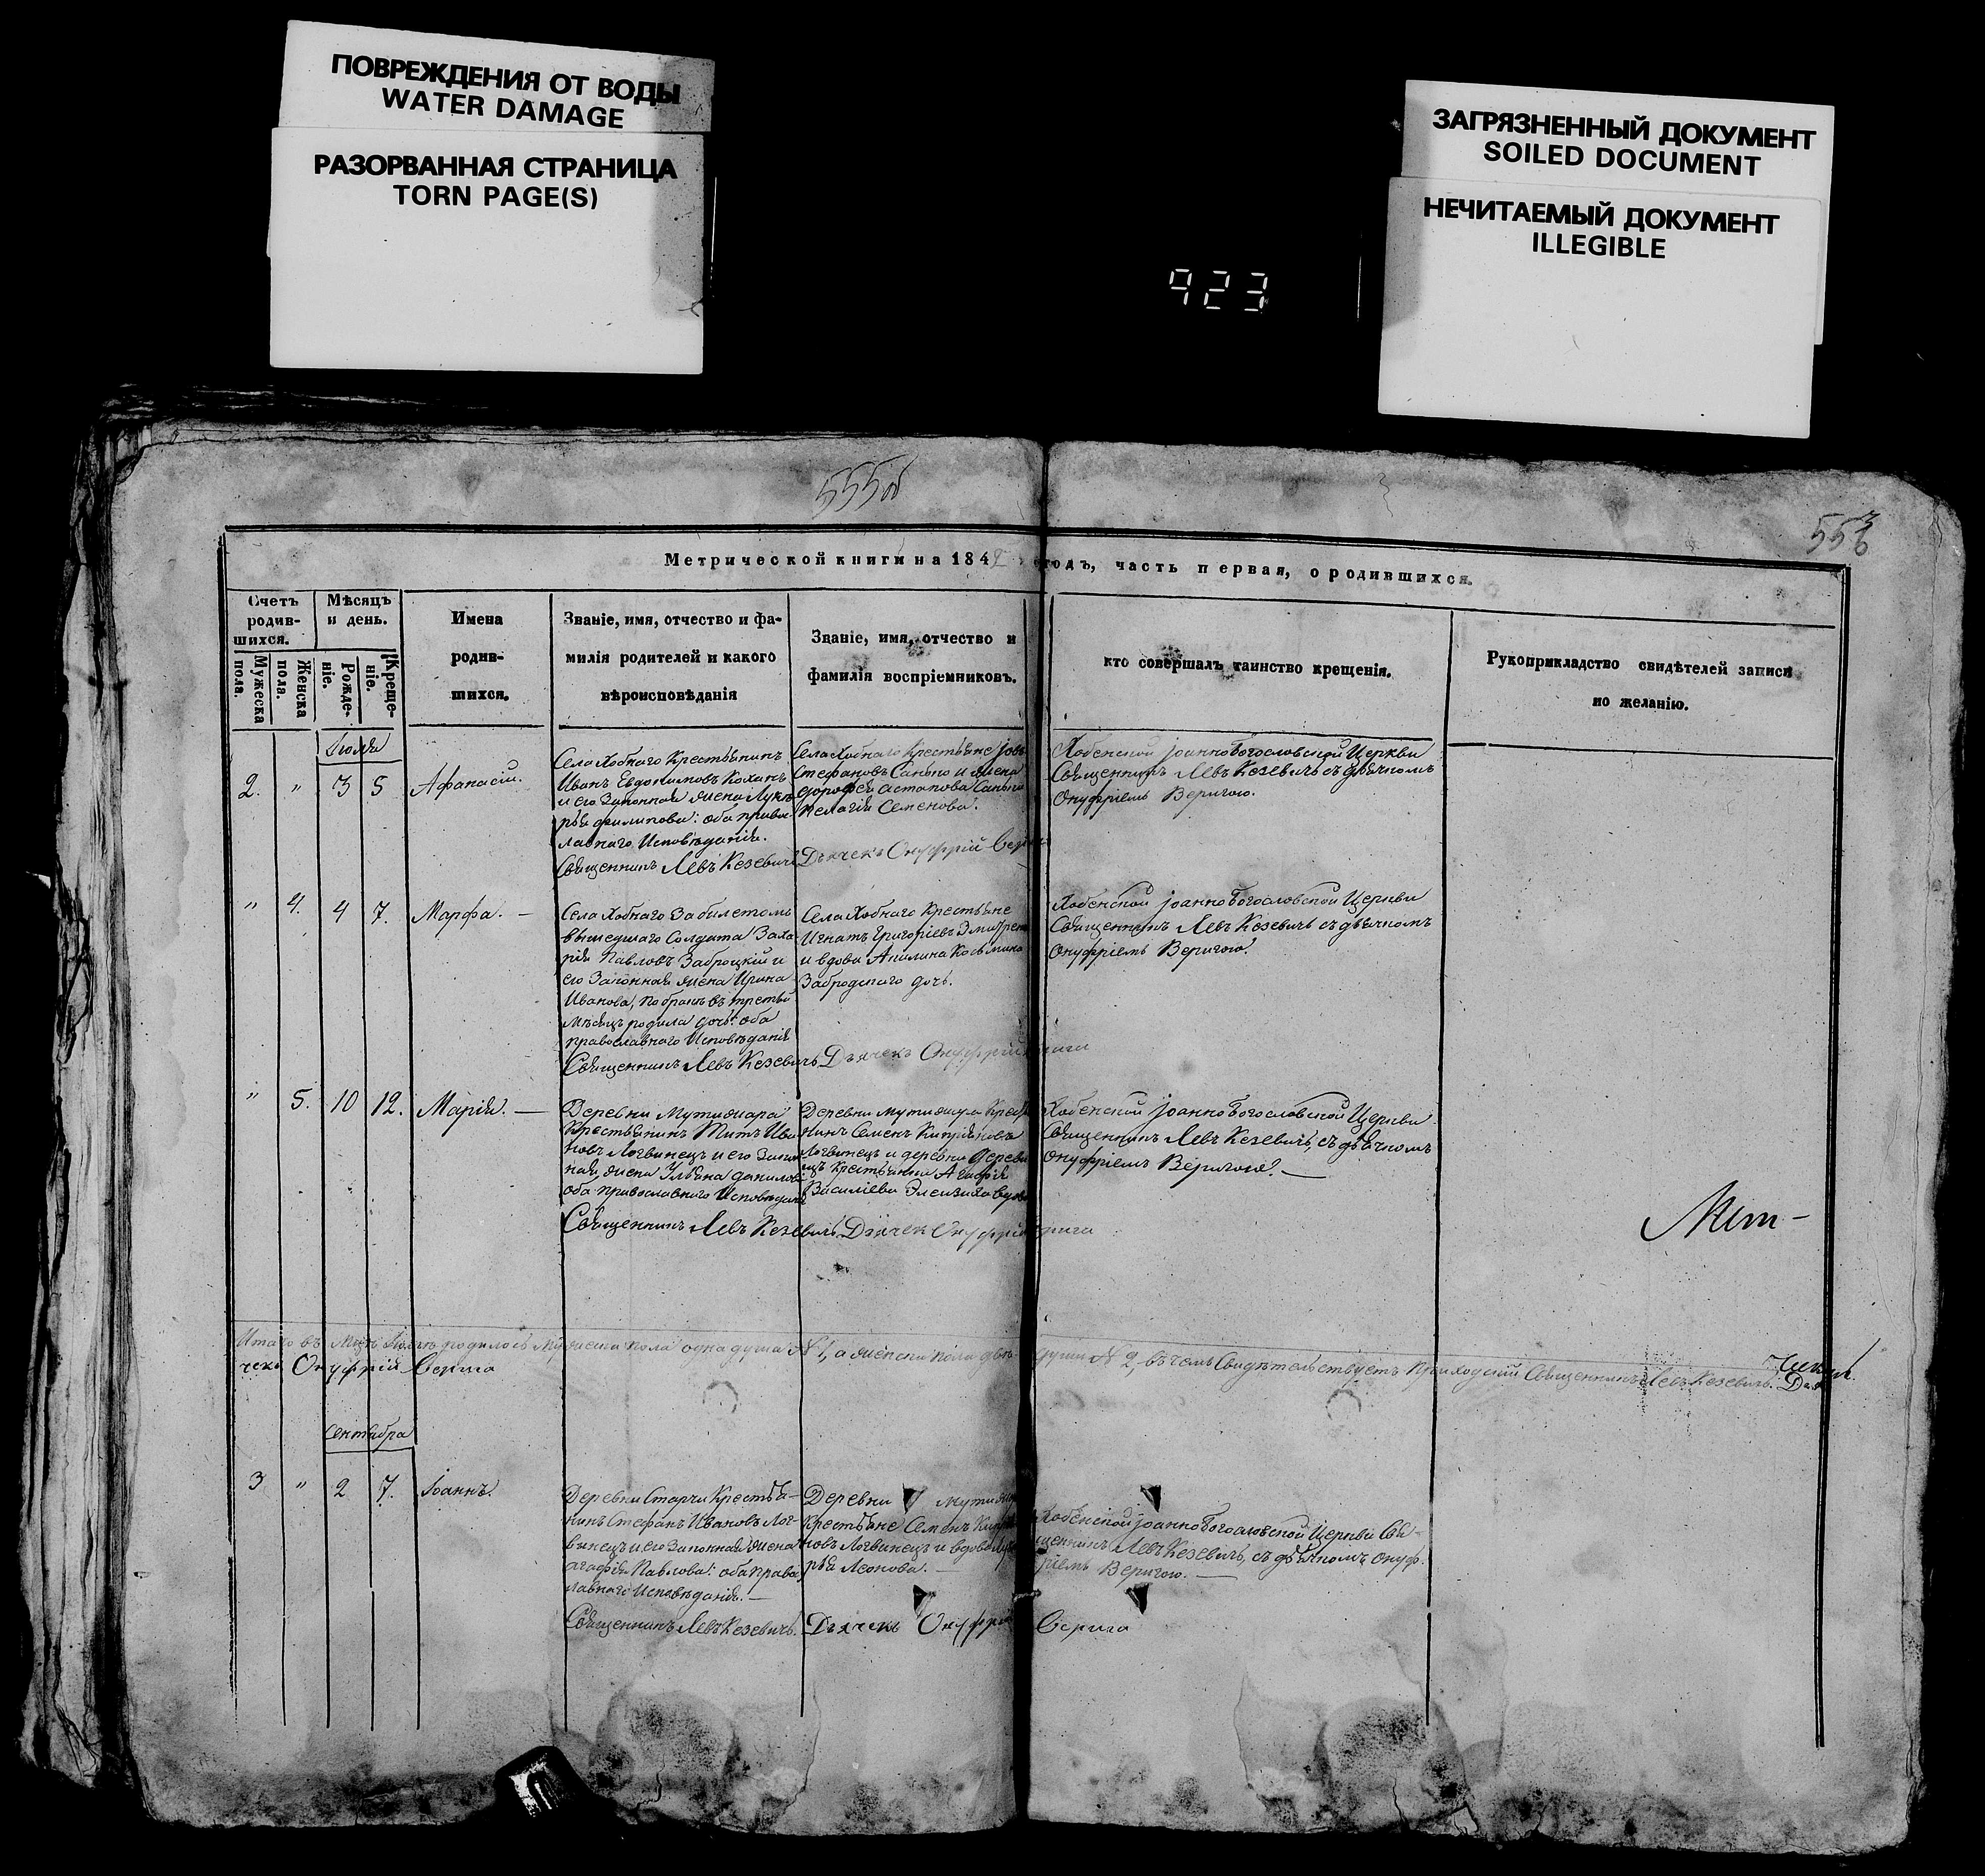 ПОВРЕЖДЕНИЯ ОТ ВОДЫ
WATER DAMAGE
РАЗОРВАННАЯ СТРАНИЦА
TORN PAGE(S)
ЗАГРЯЗНЕННЫЙ ДОКУМЕНТ
SOILED DOCUMENT
НЕЧИТАЕМЫЙ ДОКУМЕНТ
ILLEGIBLE
923
556
Метрической книги на 1842 годъ, часть первая, о родившихся.
Счетъ родив-шихся.
Мужеска пола.
Женска пола.
Мѣсяцъ и день.
Рожде-ніе.
Креще-ніе.
Имена
родив-
шихся.
Званіе, имя, отчество и фа-
милія родителей и какого
вѣроисповѣданія
Званіе, имя, отчество и
фамилія воспріемниковъ.
кто совершалъ таинство крещенія.
Рукоприкладство свидѣтелей записи
по желанію.
2. " 3 5 Афанасій.
Села Хобнаго Крестьянинъ
Иванъ Евдокимовъ Коханъ
и его Законная жена Лукѣ
рья Филипова: оба право
лавнаго Исповѣданія.
Священникъ Левъ Кезевичъ
Села Хобнаго Крестьяне
Стефановъ и жена
Пелагія Семенова.
Дьячекъ Онуфрій
Хобенской Іоанно Богословской Церкви
Священникъ Левъ Кезевичъ съ дьячкомъ
Онуфріемъ Веригою.
" 4. 4 7. Марфа. —
Села Хобнаго За билетомъ
вышедшаго Солдата Заха
рія Павловъ Заброцкій и
его Законная жена Ирина
Иванова, по бракѣ въ третьй
Мѣсяцъ родила дочь: оба
православнаго Исповѣданія
Священникъ Левъ Кезевичъ
Села Хобнаго Крестьяне
Игнатъ Григоріевъ
и вдова Акилина Косьмина
Забродскаго дочь.
Дьячекъ Онуфрій
Хобенской Іоанно Богословской Церкви
Священникъ Левъ Кезевичъ съ дьячкомъ
Онуфріемъ Веригою.
" 5. 10 12. Марія. —
Деревни Мутижара
Крестьянинъ Титъ Ива
новъ Логвинецъ и его Закон
ная жена Ульяна Данилова
оба православнаго Исповѣданія
Священникъ Левъ Кезевичъ
Деревни
нинъ Семенъ Кипріяновъ
Логвинецъ и деревни
Крестьянка Агафія
Василіева
Дьячек Онуфрій
Хобенской Іоанно Богословской Церкви
Священникъ Левъ Кезевичъ, съ дьячкомъ
Онуфріемъ Веригою. —
Мет-
Итого въ родилось Мужеска пола одна душа №1, а женска пола двѣ души № 2, въ чемъ Свидѣтельствуетъ Приходскій Священникъ Левъ Кезевичъ.
чекъ Онуфрій Верига
Сентября
3 " 2 7. Іоаннъ.
Деревни Старчи Крестья-
нинъ Стефанъ Ивановъ Лог-
винецъ и его Законная жена
Агафія Павлова: оба право
лавнаго Исповѣданія. —
Священникъ Левъ Кезевичъ.
Деревни
Крестьяне Семенъ
новъ Логвинецъ и вдова
рья Леонова. —
Дьячекъ Онуфрій Верига
Хобенской Іоанно Богословской Церкви Свя-
щенникъ Левъ Кезевичъ, съ дьячкомъ Онуф-
ріемъ Веригою. —